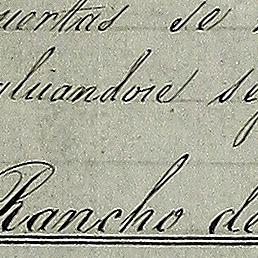 uentas se
luandose se
Rancho de